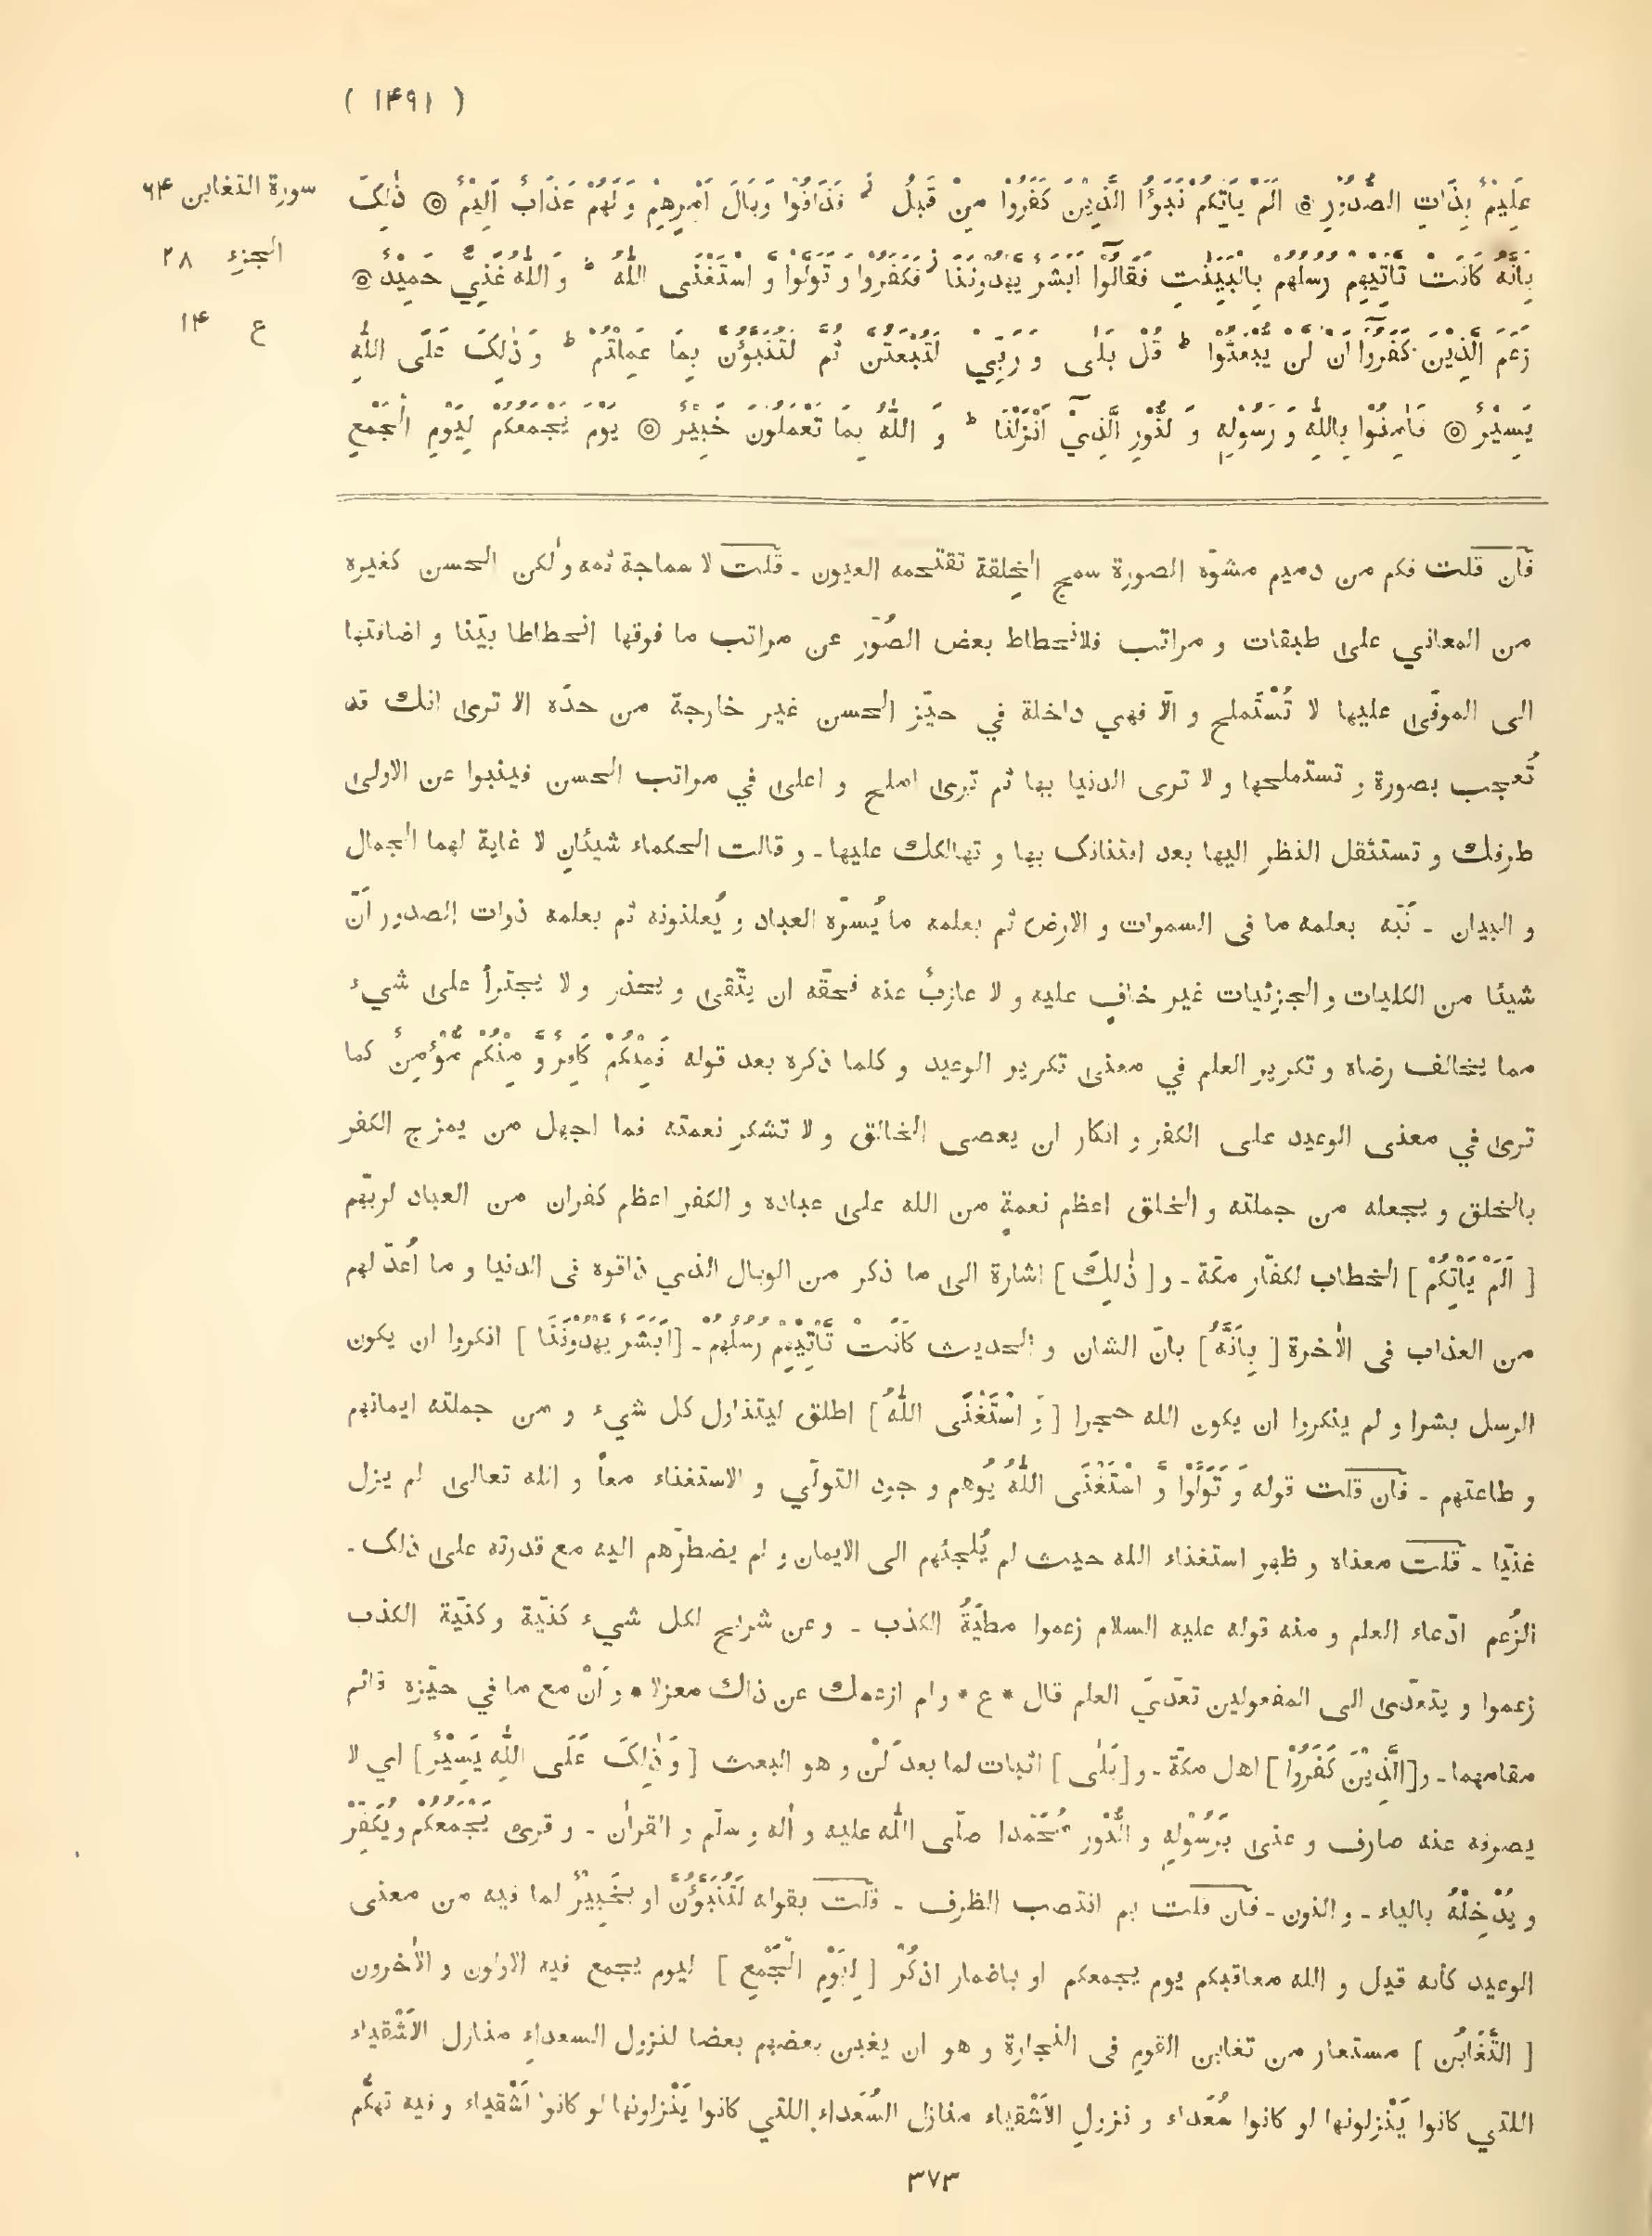 ( ۱۴۹۱ )
سورة التغابن ۶۴
الجزء ۲۸
ع ۱۴
عَلِيْمٌ بِذَاتِ الصُّدُوْرِ ۞ اَلَمْ يَاْتِكُمْ نَبَؤُا الَّذِيْنَ كَفَرُوْا مِنْ قَبْلُ ز فَذَاقُوْا وَبَالَ اَمْرِهِمْ وَلَهُمْ عَذَابٌ اَلِيْمٌ ۞ ذٰلِكَ
بِاَنَّهٗ كَانَتْ تَاْتِيْهِمْ رُسُلُهُمْ بِالْبَيِّنٰتِ فَقَالُوْٓا اَبَشَرٌ يَّهْدُوْنَنَا ز فَكَفَرُوْا وَ تَوَلَّوْا وَّ اسْتَغْنَى اللّٰهُ ط وَ اللّٰهُ غَنِيٌّ حَمِيْدٌ ۞
زَعَمَ الَّذِيْنَ كَفَرُوْٓا اَنْ لَّنْ يُّبْعَثُوْا ط قُلْ بَلٰى وَ رَبِّيْ لَتُبْعَثُنَّ ثُمَّ لَتُنَبَّؤُنَّ بِمَا عَمِلْتُمْ ط وَ ذٰلِكَ عَلَى اللّٰهِ
يَسِيْرٌ ۞ فَاٰمِنُوْا بِاللّٰهِ وَ رَسُوْلِهٖ وَ النُّوْرِ الَّذِيْٓ اَنْزَلْنَا ط وَ اللّٰهُ بِمَا تَعْمَلُوْنَ خَبِيْرٌ ۞ يَوْمَ يَجْمَعُكُمْ لِيَوْمِ الْجَمْعِ
فان قلت فكم من دميم مشوّه الصورة سمج الخلقة تقتحمه العيون ـ قلت لا سماجة ثمه ولكن الحسن كغيره
من المعاني على طبقات و مراتب فلانحطاط بعض الصُوَر عن مراتب ما فوقها انحطاطا بيّنا و اضافتها
الى الموفّى عليها لا تُسْتَملح و الّا فهي داخلة في حيّز الحسن غير خارجة من حدّه الا ترى انك قد
تُعجب بصورة و تستملحها و لا ترى الدنيا بها ثم ترى املح و اعلى في مراتب الحسن فينبوا عن الاولى
طرفك و تستثقل النظر اليها بعد افتنانك بها و تهالكك عليها ـ و قالت الحكماء شيئانِ لا غاية لهما الجمال
و البيان ـ نَبّه بعلمه ما فى السموات و الارض ثم بعلمه ما يُسرّه العباد و يُعلنونه ثم بعلمه ذوات الصدور اَنّ
شيئا من الكليات و الجزئيات غير خافٍ عليه و لا عازبٌ عنه فحقّه ان يتّقى و يحذر و لا يجترأ على شيء
مما يخالف رضاه و تكرير العلم في معنى تكرير الوعيد و كلما ذكره بعد قوله فَمِنْكُمْ كَافِرٌ وَّ مِنْكُمْ مُّؤْمِنٌ كما
ترى في معنى الوعيد على الكفر و انكار ان يعصى الخالق و لا تشكر نعمته فما اجهل من يمزج الكفر
بالخلق و يجعله من جملته و الخلق اعظم نعمةٍ من الله على عباده و الكفر اعظم كفران من العباد لربّهم
[ اَلَمْ يَاْتِكُمْ ] الخطاب لكفّار مكّة ـ و [ ذٰلِكَ ] اشارة الى ما ذكر من الوبال الذي ذاقوه فى الدنيا و ما اُعدّ لهم
من العذاب فى الاٰخرة [ بِاَنَّهٗ ] بانّ الشان و الحديث كَانَتْ تَاْتِيْهِمْ رُسُلُهُمْ ـ [ اَبَشَرٌ يَّهْدُوْنَنَا ] انكروا ان يكون
الرسل بشرا و لم ينكروا ان يكون الله حجرا [ وَ اسْتَغْنَى اللّٰهُ ] اطلق ليتناول كل شيء و من جملته ايمانهم
و طاعتهم ـ فان قلت قوله وَ تَوَلَّوْا وَّ اسْتَغْنَى اللّٰهُ يُوهم وجود التولّي و الاستغناء معاً و الله تعالى لم يزل
غنيّا ـ قلت معناه و ظهر استغناء الله حيث لم يُلجئهم الى الايمان و لم يضطرّهم اليه مع قدرته على ذلك ـ
الزُعم ادّعاء العلم و منه قوله عليه السلام زعموا مطيّةُ الكذب ـ و عن شريح لكل شيء كنيّة و كنيّة الكذب
زعموا و يتعدّى الى المفعولين تعدّيَ العلم قال * ع * و لم ازعمك عن ذاك معزلا * و اَنْ مع ما في حيّزه قائم
مقامهما ـ و [ الَّذِيْنَ كَفَرُوْٓا ] اهل مكّة ـ و [ بَلٰى ] اثبات لما بعد لَنْ و هو البعث [ وَ ذٰلِكَ عَلَى اللّٰهِ يَسِيْرٌ ] اي لا
يصرفه عنه صارف و عنى بِرَسُوْلِهٖ و النُّوْر مُحَمّدا صلّى اللّٰه عليه و اٰله و سلّم و القراٰن ـ و قرئ يَجْمَعُكُمْ و يُكَفِّرْ
و يُدْخِلْهُ بالياء ـ و النون ـ فان قلت بم انتصب الظرف ـ قلت بقوله لَتُنَبَّؤُنَّ او بِخَبِيْرٌ لما فيه من معنى
الوعيد كأنه قيل و الله معاقبكم يوم يجمعكم او باضمار اذكُرْ [ لِيَوْمِ الْجَمْعِ ] ليوم يجمع فيه الاولون و الاٰخرون
[ التَّغَابُنِ ] مستعار من تغابن القوم فى التجارة و هو ان يغبن بعضهم بعضا لنزول السعداءِ منازل الاَشْقياء
اللتي كانوا يَنْزلونها لو كانوا سُعَداء و نزولِ الاَشْقياء منازل السُعَداء اللتي كانوا يَنْزلونها لو كانوا اَشْقياء و فيه تهكّم
۳۷۳